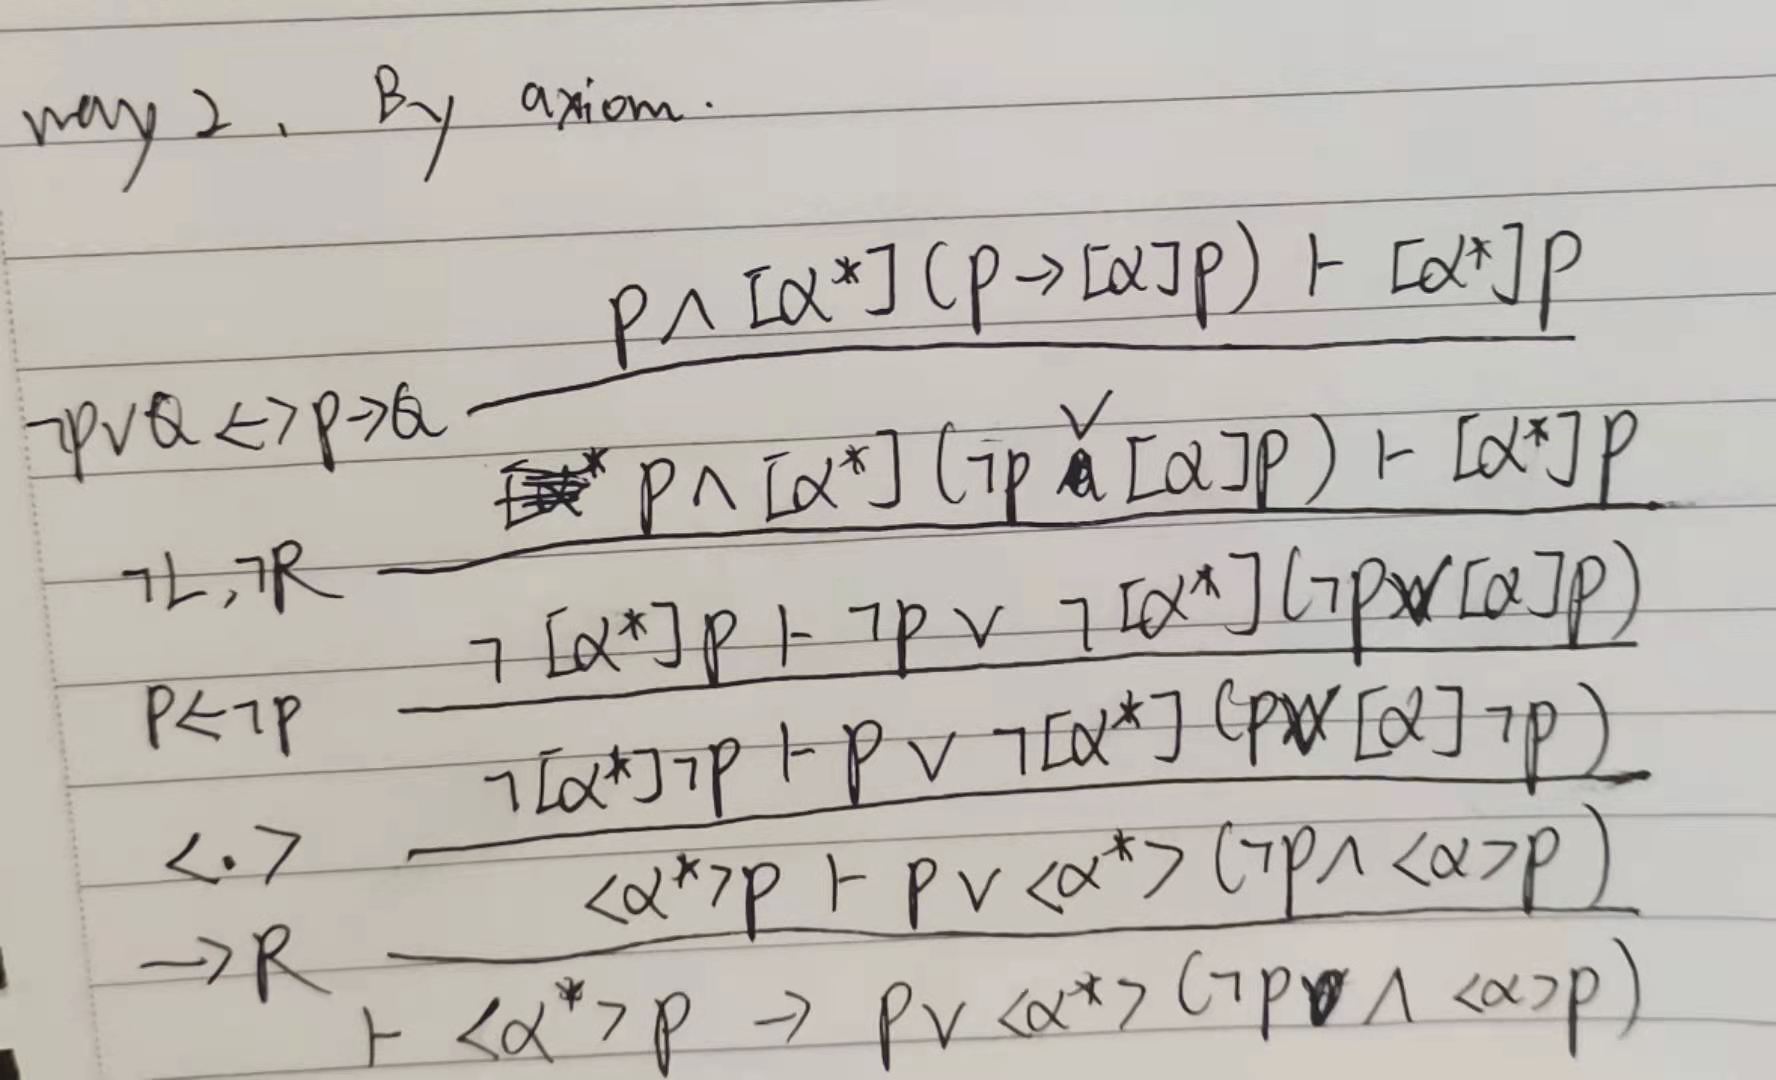 way 2. By axiom.
p ∧ [α*] (p → [α]p) ⊢ [α*]p
¬p∨Q ↔ p→Q
p ∧ [α*] (¬p ∨ [α]p) ⊢ [α*]p
¬L, ¬R
¬[α*]p ⊢ ¬p ∨ ¬[α*](¬p∨[α]p)
p←¬p
¬[α*]¬p ⊢ p ∨ ¬[α*](p∨[α]¬p)
<·>
<α*>p ⊢ p ∨ <α*>(¬p ∧ <α>p)
→R
⊢ <α*>p → p ∨ <α*>(¬p ∧ <α>p)